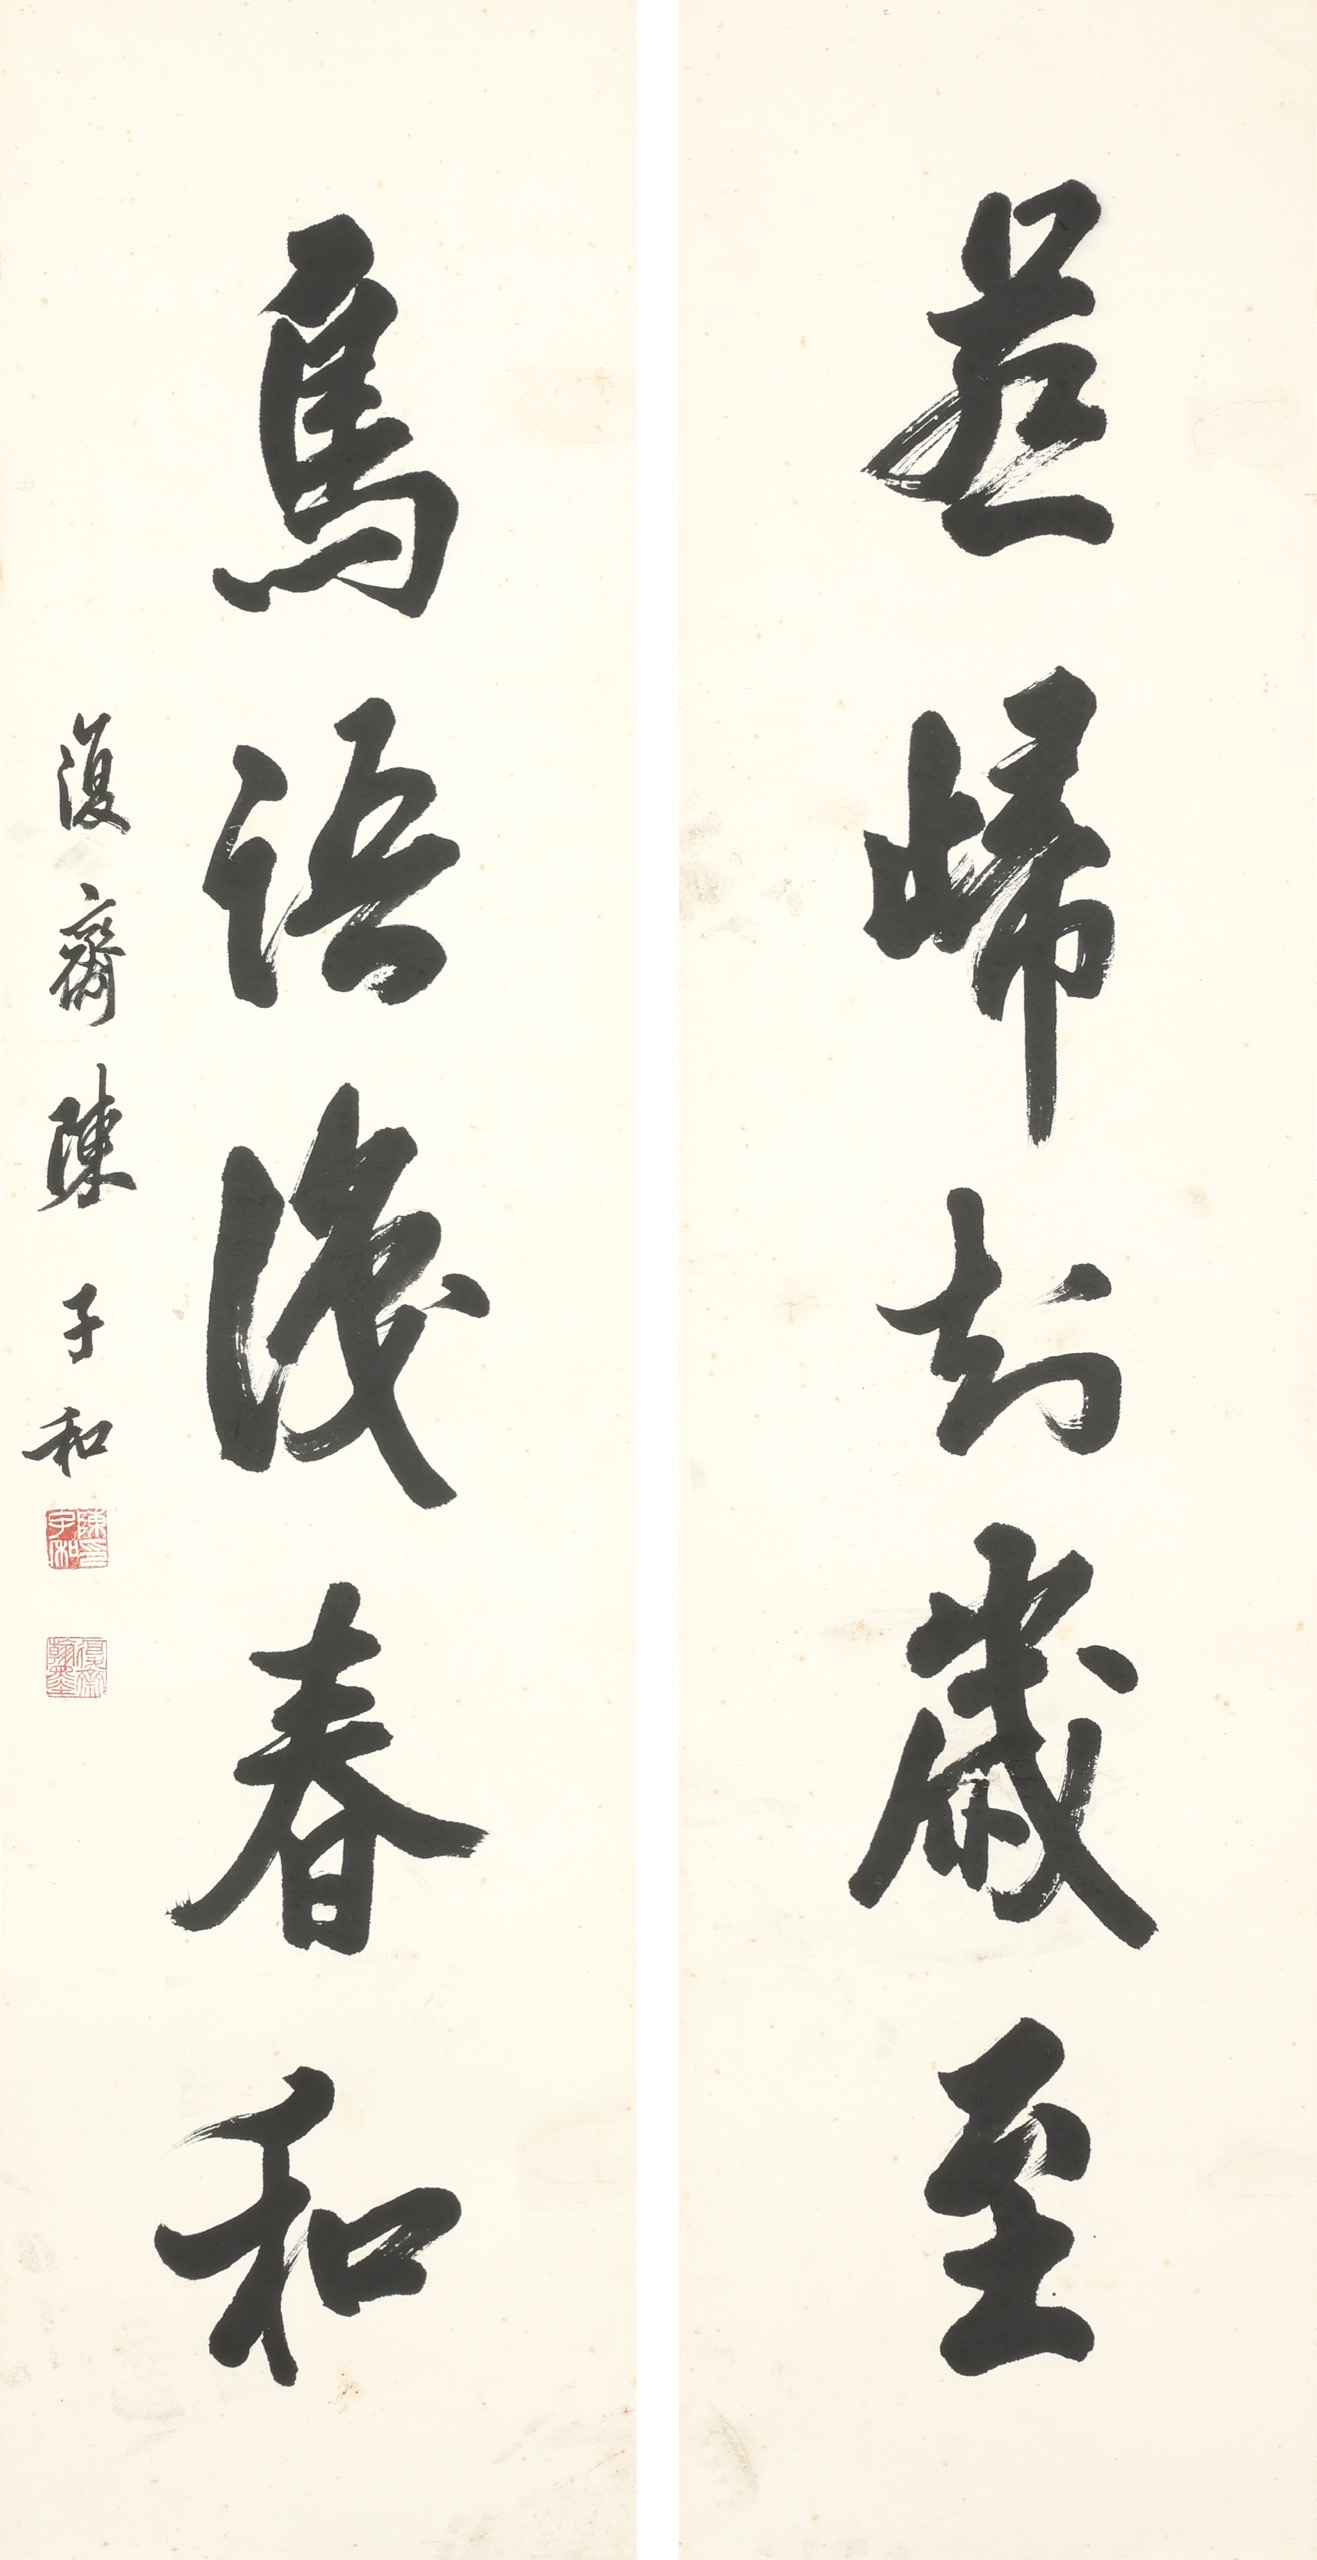 燕歸知歲至
鳥語識春和
復齋陳子和
陳印子和
復齋翰墨